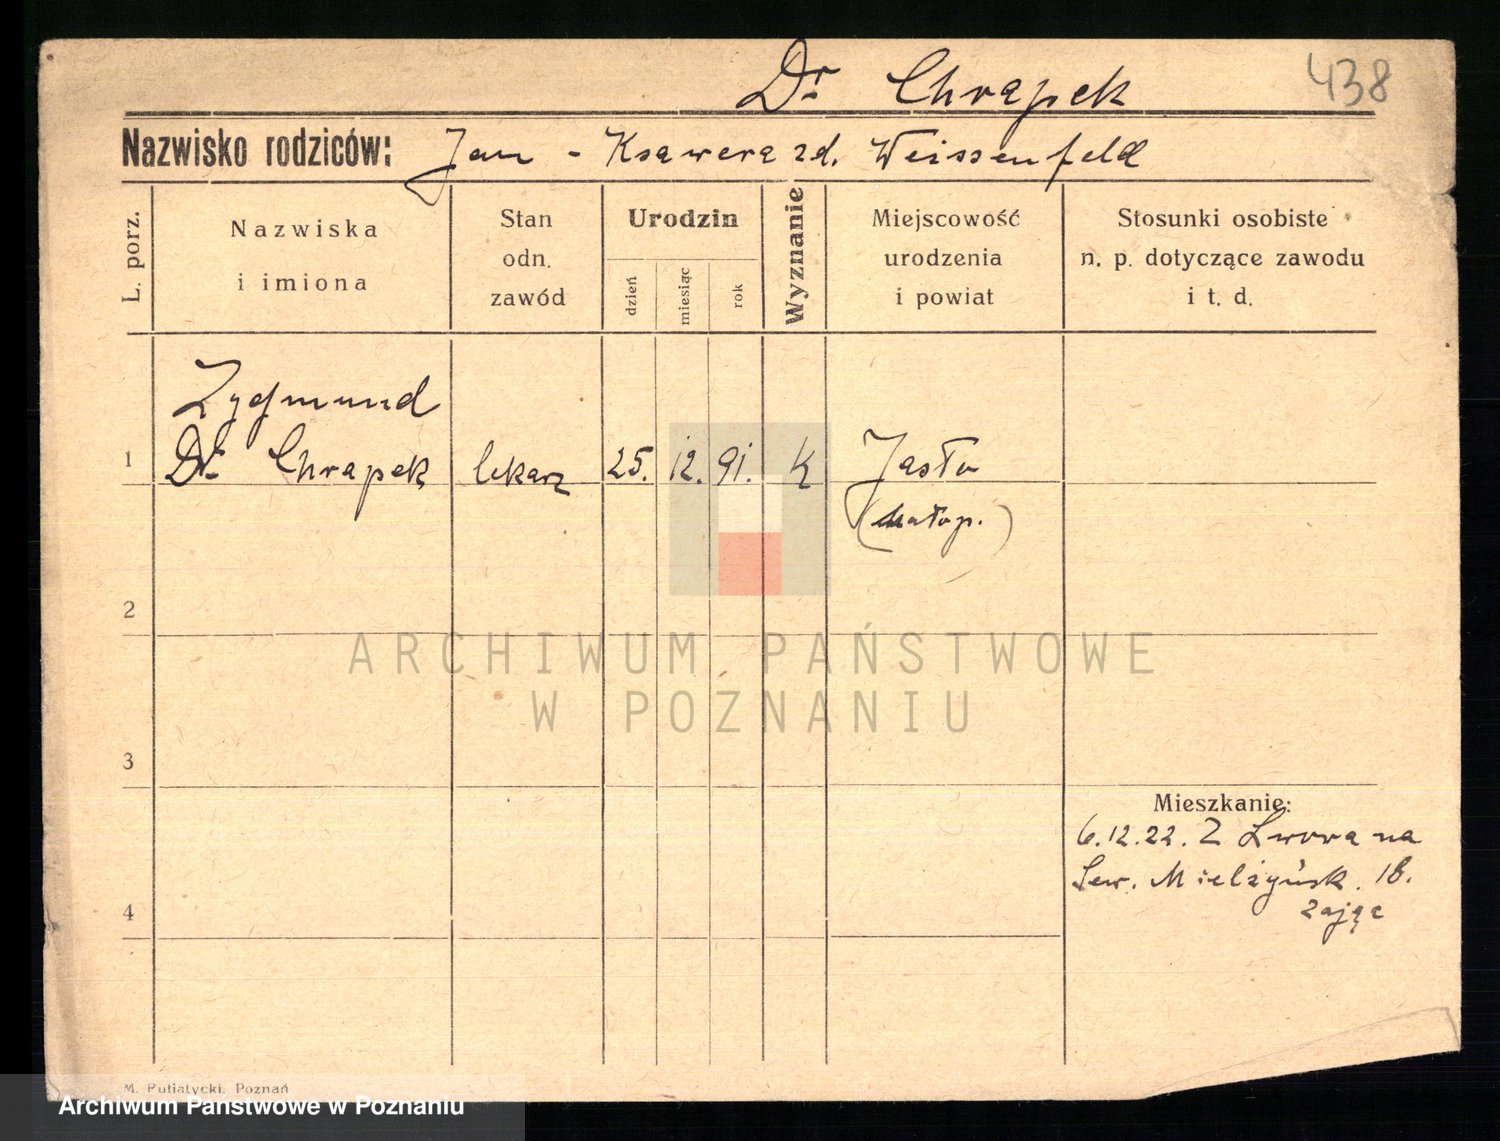 Dr Chrapek 438
Nazwisko rodziców: Jan - Ksawera zd. Weissenfeld
L. porz.
Nazwiska
i imiona
Stan
odn.
zawód
Urodzin
dzień
miesiąc
rok
Wyznanie
Miejscowość
urodzenia
i powiat
Stosunki osobiste
n. p. dotyczące zawodu
i t. d.
Zygmund
1 Dr Chrapek lekarz 25. 12. 91. K Jasło
(małop.)
2
3
4
Mieszkanie:
6.12.22. Z Lwowa na
Sew. Mielżyńsk. 18.
Zając
M. Putiatycki, Poznań
ARCHIWUM PAŃSTWOWE
W POZNANIU
Archiwum Państwowe w Poznaniu